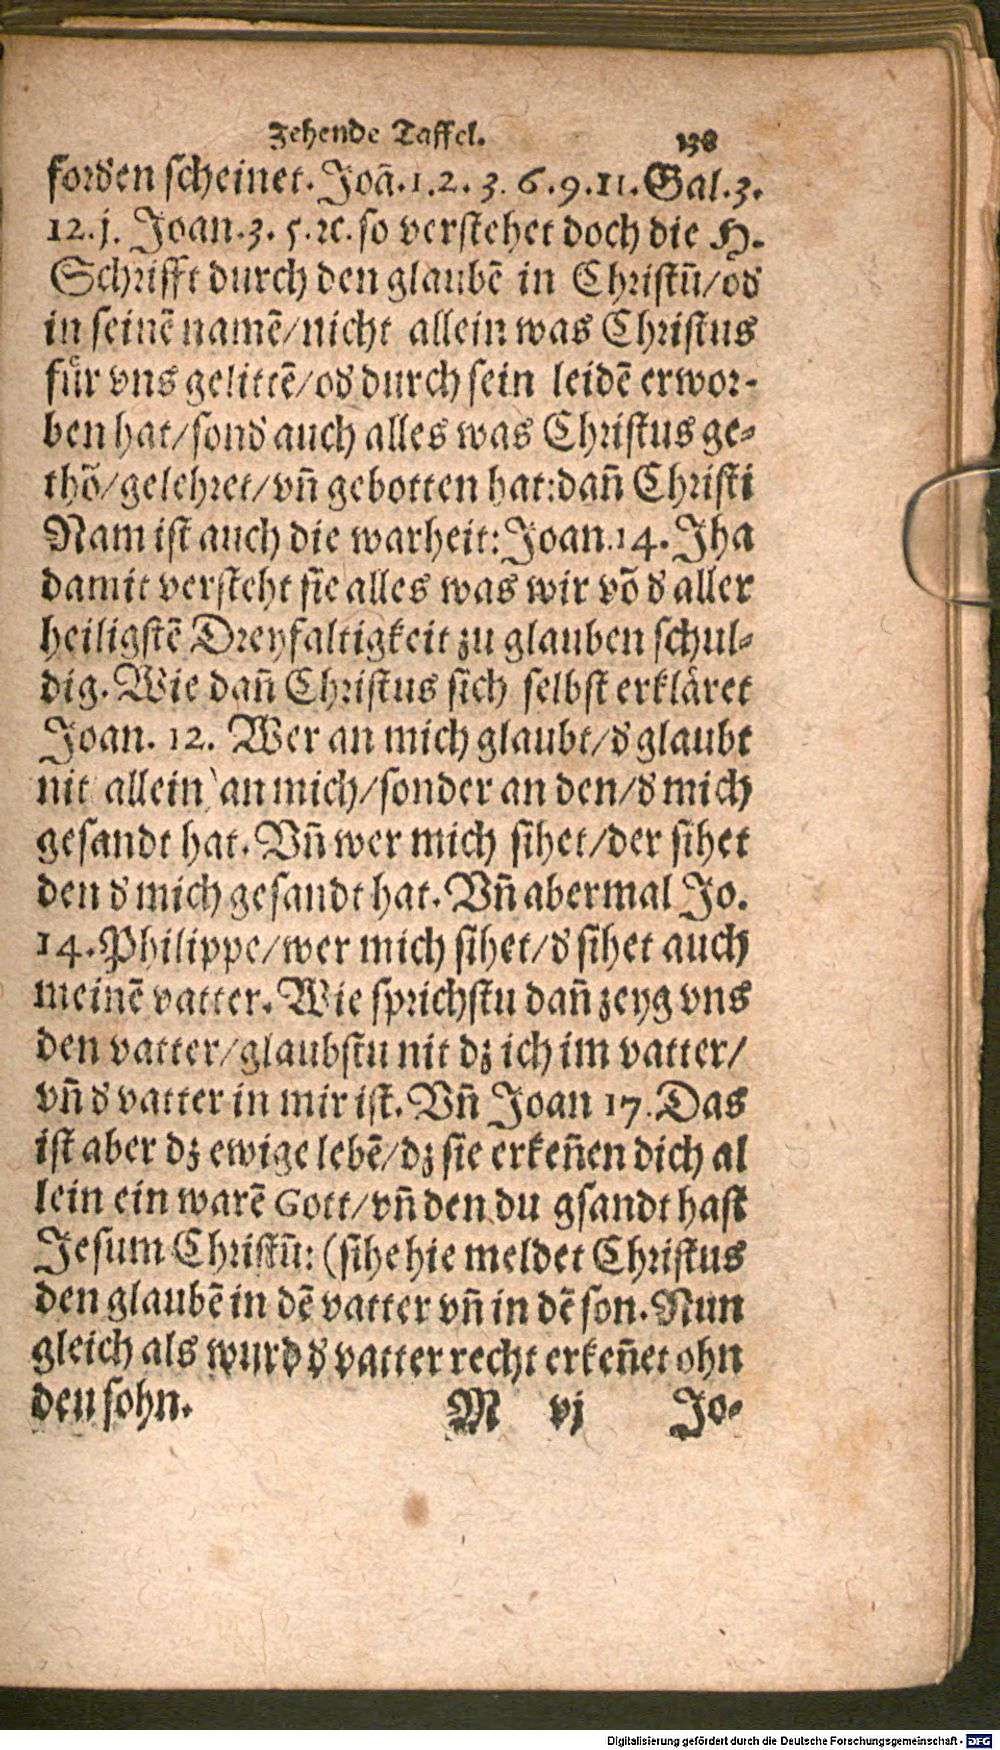 Zehende Taffel. 138
forden scheinet. Joã.1.2.3.6.9.11.Gal.3.
12.j. Joan.3.5.ꝛc.so verstehet doch die H.
Schrifft durch den glaubẽ in Christũ/od
in seinẽ namẽ/nicht allein was Christus
für vns gelittẽ/od durch sein leidẽ erwor-
ben hat/sond auch alles was Christus ge-
thõ/gelehret/vñ gebotten hat:dañ Christi
Nam ist auch die warheit: Joan.14. Jha
damit versteht sie alles was wir võ d aller
heiligstẽ Dreyfaltigkeit zu glauben schul-
dig. Wie dañ Christus sich selbst erkläret
Joan. 12. Wer an mich glaubt/d glaubt
nit allein an mich/sonder an den/d mich
gesandt hat. Vñ wer mich sihet/der sihet
den d mich gesandt hat. Vñ abermal Jo.
14. Philippe/wer mich sihet/d sihet auch
meinẽ vatter. Wie sprichstu dañ zeyg vns
den vatter/glaubstu nit dz ich im vatter/
vñ d vatter in mir ist. Vñ Joan 17. Das
ist aber dz ewige lebẽ/dz sie erkeñen dich al
lein ein warẽ Gott/vñ den du gsandt hast
Jesum Christũ: (sihe hie meldet Christus
den glaubẽ in dẽ vatter vñ in dẽ son. Nun
gleich als wurd d vatter recht erkeñet ohn
den sohn. M vj Jo-
Digitalisierung gefördert durch die Deutsche Forschungsgemeinschaft - DFG